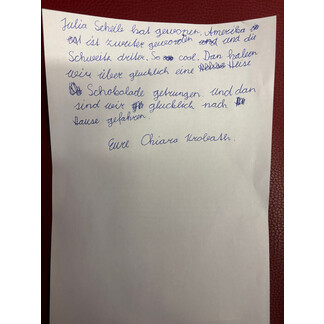 Julia Scheile hat gewonen. Amerika
ist zweiter geworden und die
Schweitz driter. So cool. Dan haben
wir über glücklich eine Heise
Schokolade getrungen. und dan
sind wir glücklich nach
Hause gefahren.
Eure Chiara